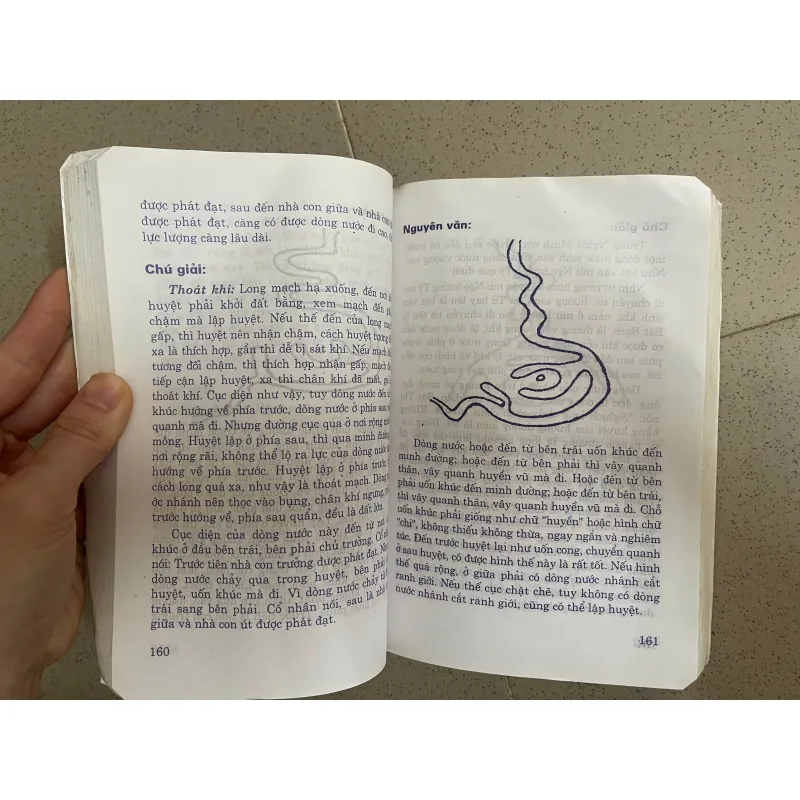 được phát đạt, sau đến nhà con giữa và nhà
được phát đạt, càng có được dòng nước đi cao,
lực lượng càng lâu dài.
Chú giải:
Thoát khí: Long mạch hạ xuống, đến nơi
huyệt phải khởi đất bằng, xem mạch đến
chậm mà lập huyệt. Nếu thế đến của long
gấp, thì huyệt nên nhận chậm, cách huyệt
xa là thích hợp, gần thì dễ bị sát khí. Nếu mạch
tương đối chậm, thì thích hợp nhận gấp, mạch
tiếp cận lập huyệt, xa thì chân khí đã mất,
thoát khí. Cục diện như vậy, tuy dòng nước đến
khúc hướng về phía trước, dòng nước ở phía sau
quanh mà đi. Nhưng đường cục qua ở nơi rộng
mông. Huyệt lập ở phía sau, thì qua minh đường
nơi rộng rãi, không thể lộ ra lực của dòng nước
hướng về phía trước. Huyệt lập ở phía trước
cách long quá xa, như vậy là thoát mạch. Dòng
ước nhánh nên thọc vào bụng, chân khí ngưng,
trước hướng về, phía sau quẩn, đều là đất lớn.
Cục diện của dòng nước này đến từ nơi
khúc ở đầu bên trái, bên phải chủ trưởng. Cổ
nói: Trước tiên nhà con trưởng được phát đạt.
dòng nước chảy qua trong huyệt, bên phải
huyệt, uốn khúc mà đi. Vì dòng nước chảy từ
trái sang bên phải. Cổ nhân nói, sau là nhà
giữa và nhà con út được phát đạt.
160
Nguyên văn:
Dòng nước hoặc đến từ bên trái uốn khúc đến
minh đường; hoặc đến từ bên phải thì vây quanh
thân, vây quanh huyền vũ mà đi. Hoặc đến từ bên
phải uốn khúc đến minh đường; hoặc đến từ bên trái,
thì vây quanh thân, vây quanh huyền vũ mà đi. Chỗ
uốn khúc phải giống như chữ "huyền" hoặc hình chữ
"chi", không thiếu không thừa, ngay ngắn và nghiêm
túc. Đến trước huyệt lại như uốn cong, chuyển quanh
ở sau huyệt, có được hình thế này là rất tốt. Nếu hình
thế quá rộng, ở giữa phải có dòng nước nhánh cắt
ranh giới. Nếu thế cục chật chẽ, tuy không có dòng
nước nhánh cắt ranh giới, cũng có thể lập huyệt.
161